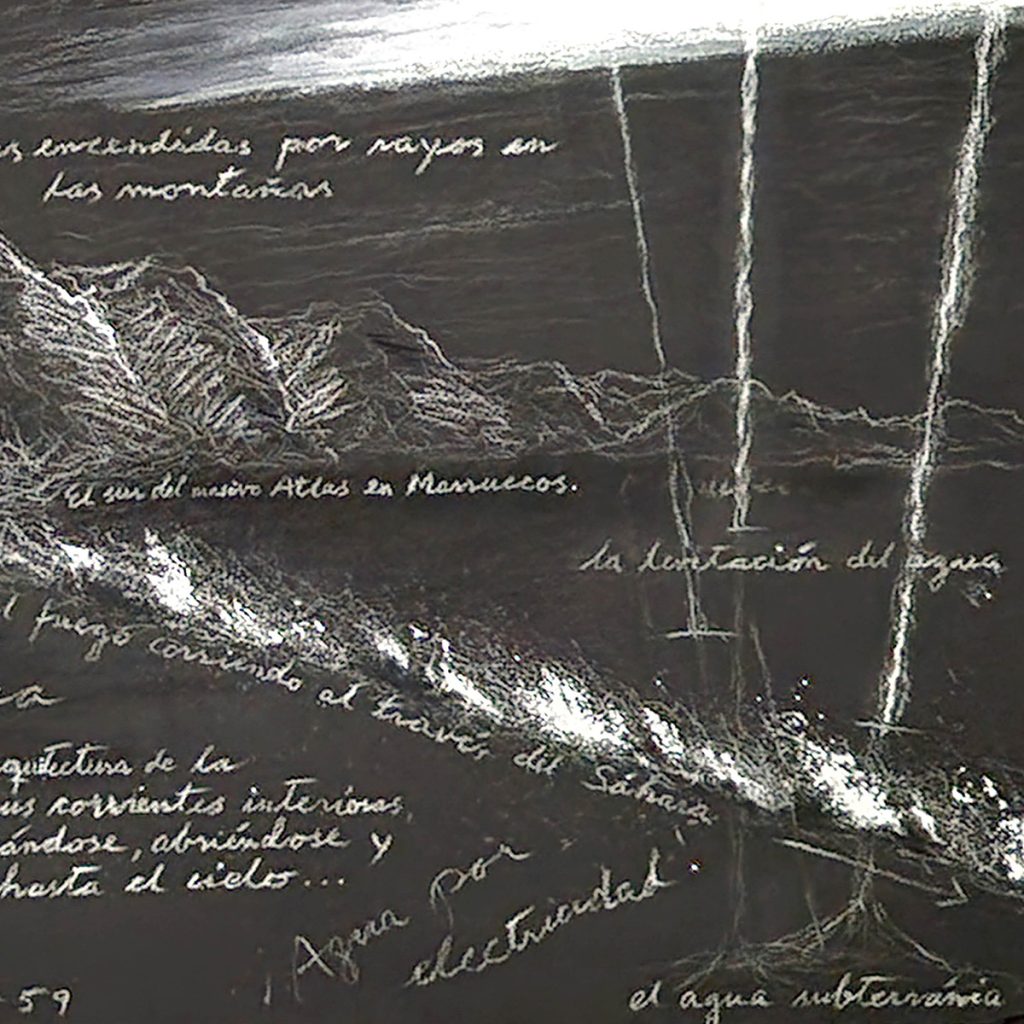 encendidas por rayos en
las montañas
El sur del masivo Atlas en Marruecos.
la levitación del agua
fuego corriendo al través del Sáhara
de la
corrientes interiores,
ándose, abriéndose y
hasta el cielo...
Agua por
electricidad
59
el agua subterránia